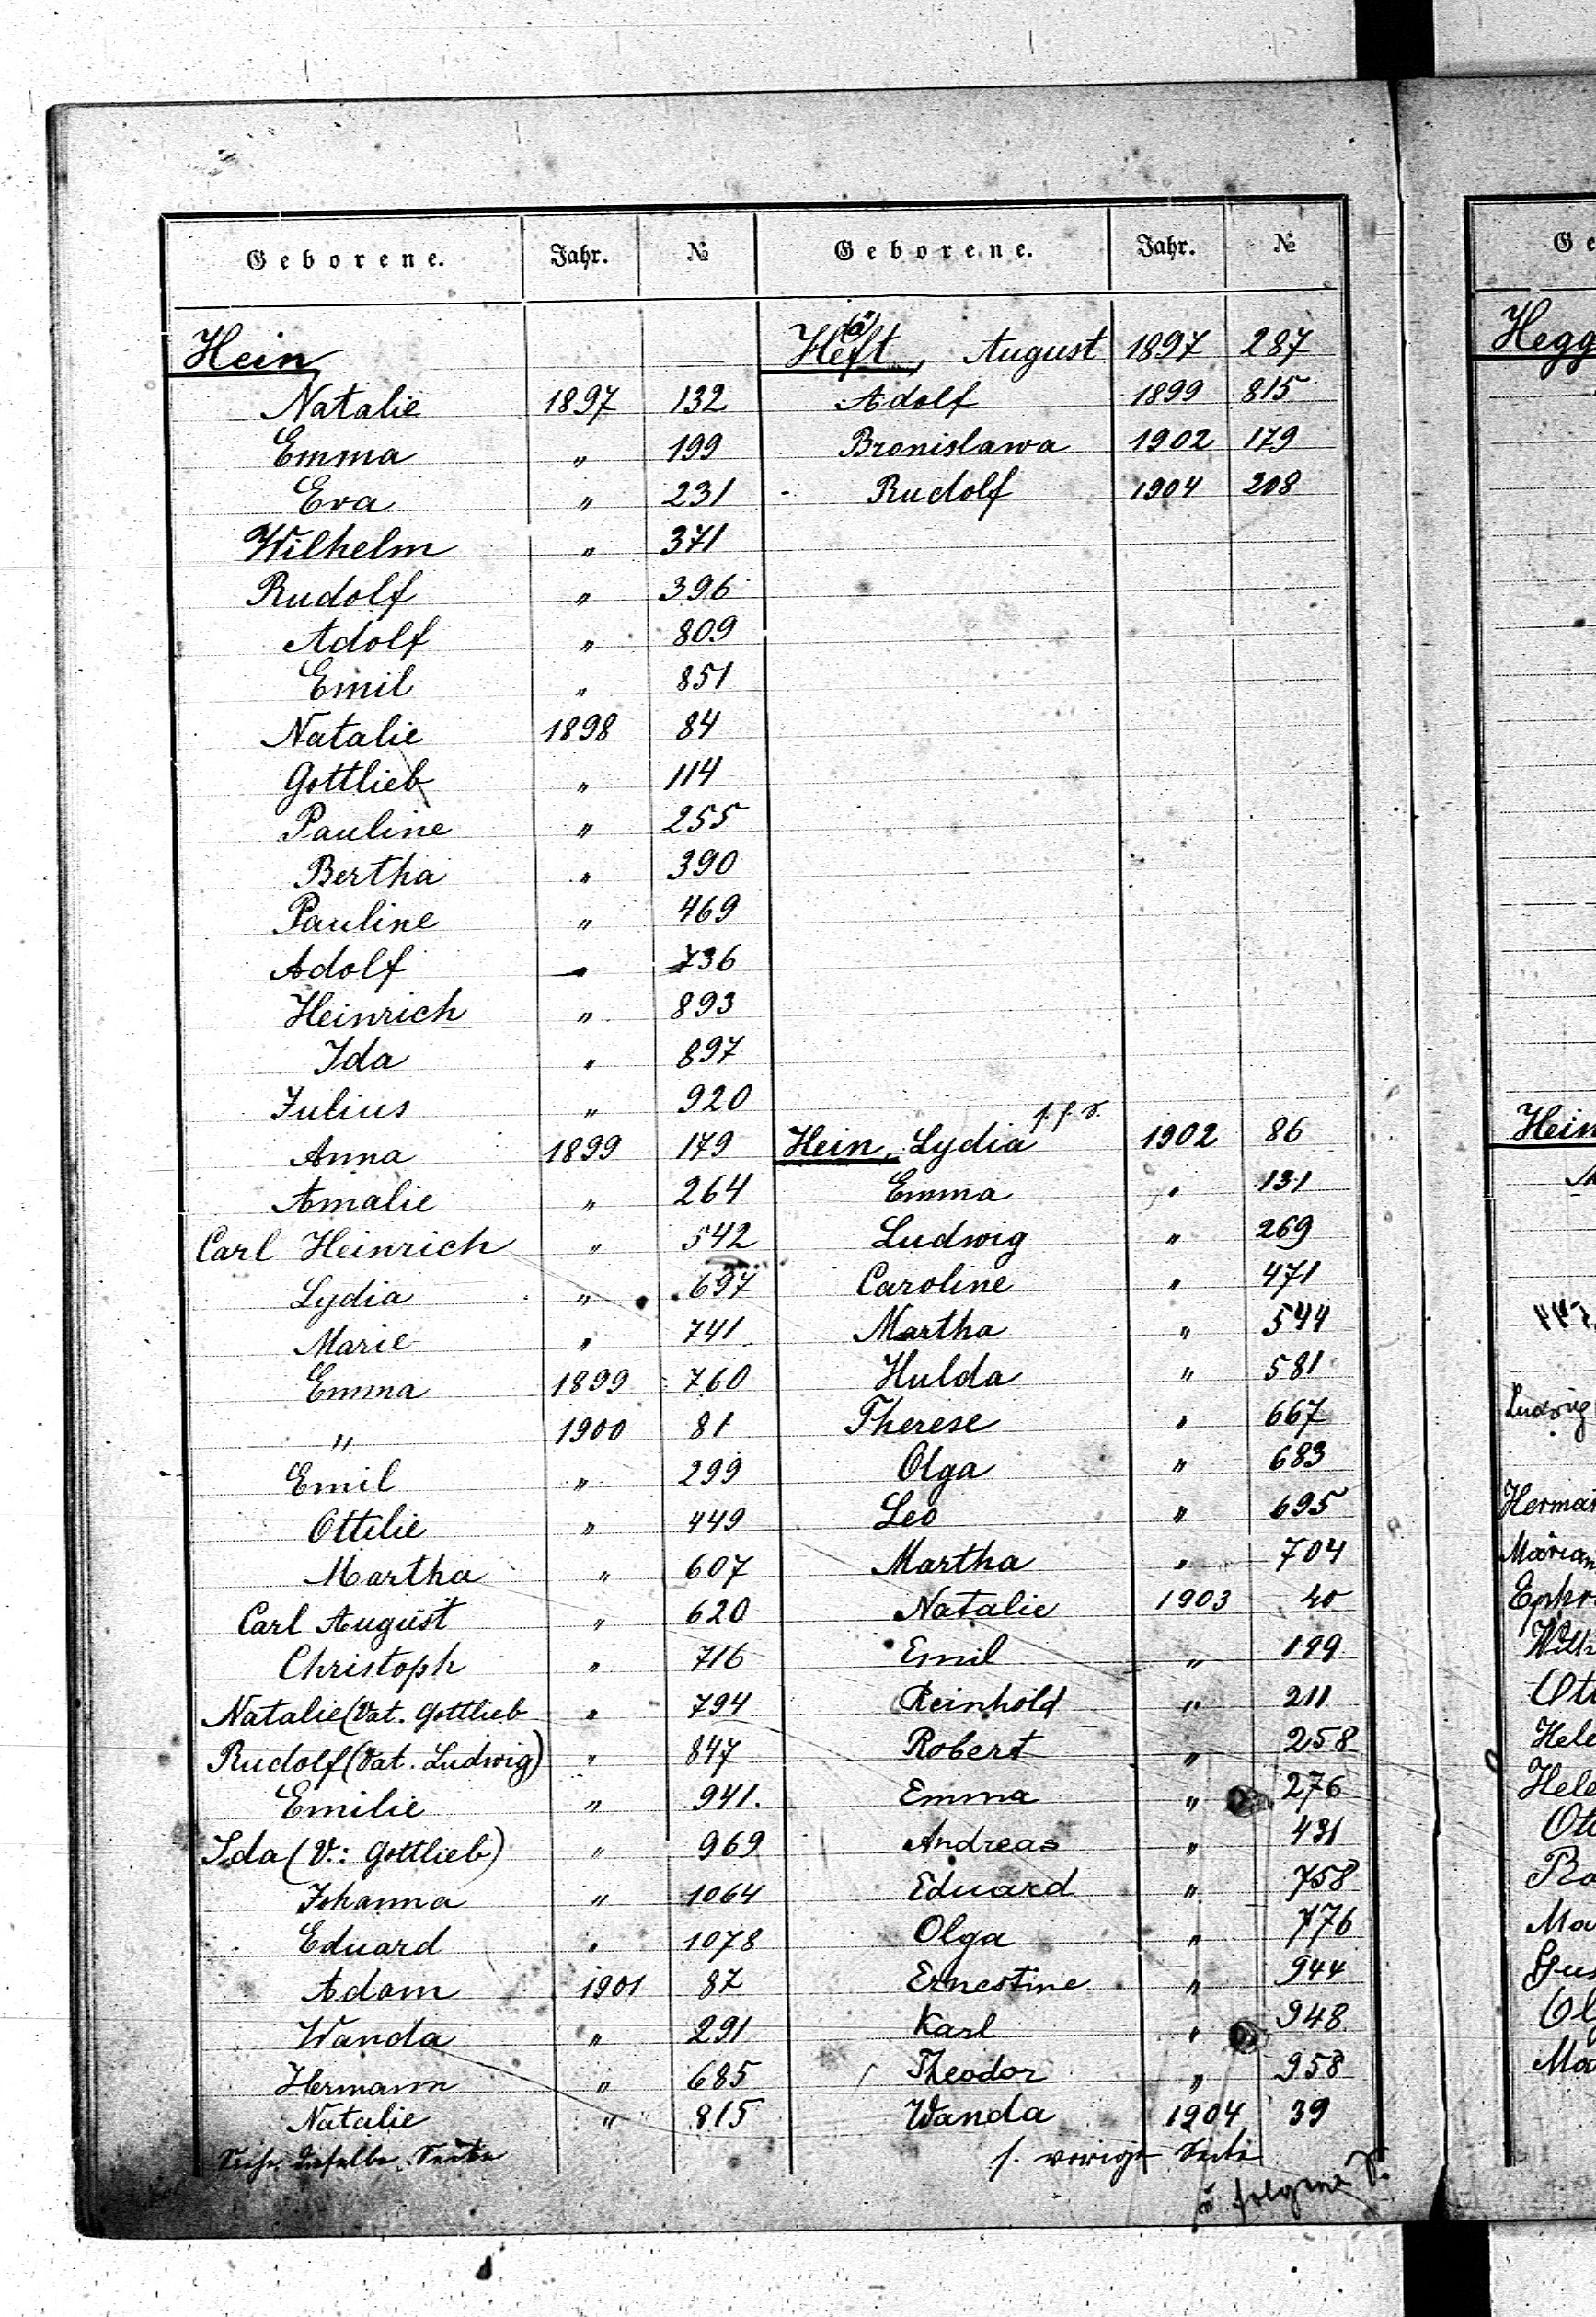 Geborene. Jahr. №
Hein
Natalie 1897 132
Emma " 199
Eva " 231
Wilhelm " 371
Rudolf " 396
Adolf " 809
Emil " 851
Natalie 1898 84
Gottlieb " 114
Pauline " 255
Bertha " 390
Pauline " 469
Adolf " 736
Heinrich " 893
Ida " 897
Julius " 920
Anna 1899 179
Amalie " 264
Carl Heinrich " 542
Lydia " 697
Marie " 741
Emma 1899 760
" 1900 81
Emil " 299
Ottilie " 449
Martha " 607
Carl August " 620
Christoph " 716
Natalie (Vat. Gottlieb " 794
Rudolf (Vat. Ludwig) " 847
Emilie " 941.
Ida (V.: Gottlieb) " 969
Johanna " 1064
Eduard " 1078
Adam 1901 87
Wanda " 291
Hermann " 685
Natalie " 815
Siehe dieselbe Seite
Geborene. Jahr. №
(ä)
Heft, August 1897 287
Adolf 1899 815
Bronislawa 1902 179
- Rudolf 1904 208
s. f. S.
Hein, Lydia 1902 86
Emma " 131
Ludwig " 269
Caroline " 471
Martha " 544
Hulda " 581
Therese " 667
Olga " 683
Leo " 695
Martha " 704
Natalie 1903 40
Emil " 199
Reinhold " 211
Robert " 258
Emma " 276
Andreas " 431
Eduard " 758
Olga " 776
Ernestine " 944
Karl " 948
Theodor " 958
Wanda 1904 39
s. vorige Seite
Ge
Hegg
Hein
Ludwig
Herman
Marian
Ephr
Wilh
Ott
Hele
Hele
Ott
Ma
Gus
Ol
Ma